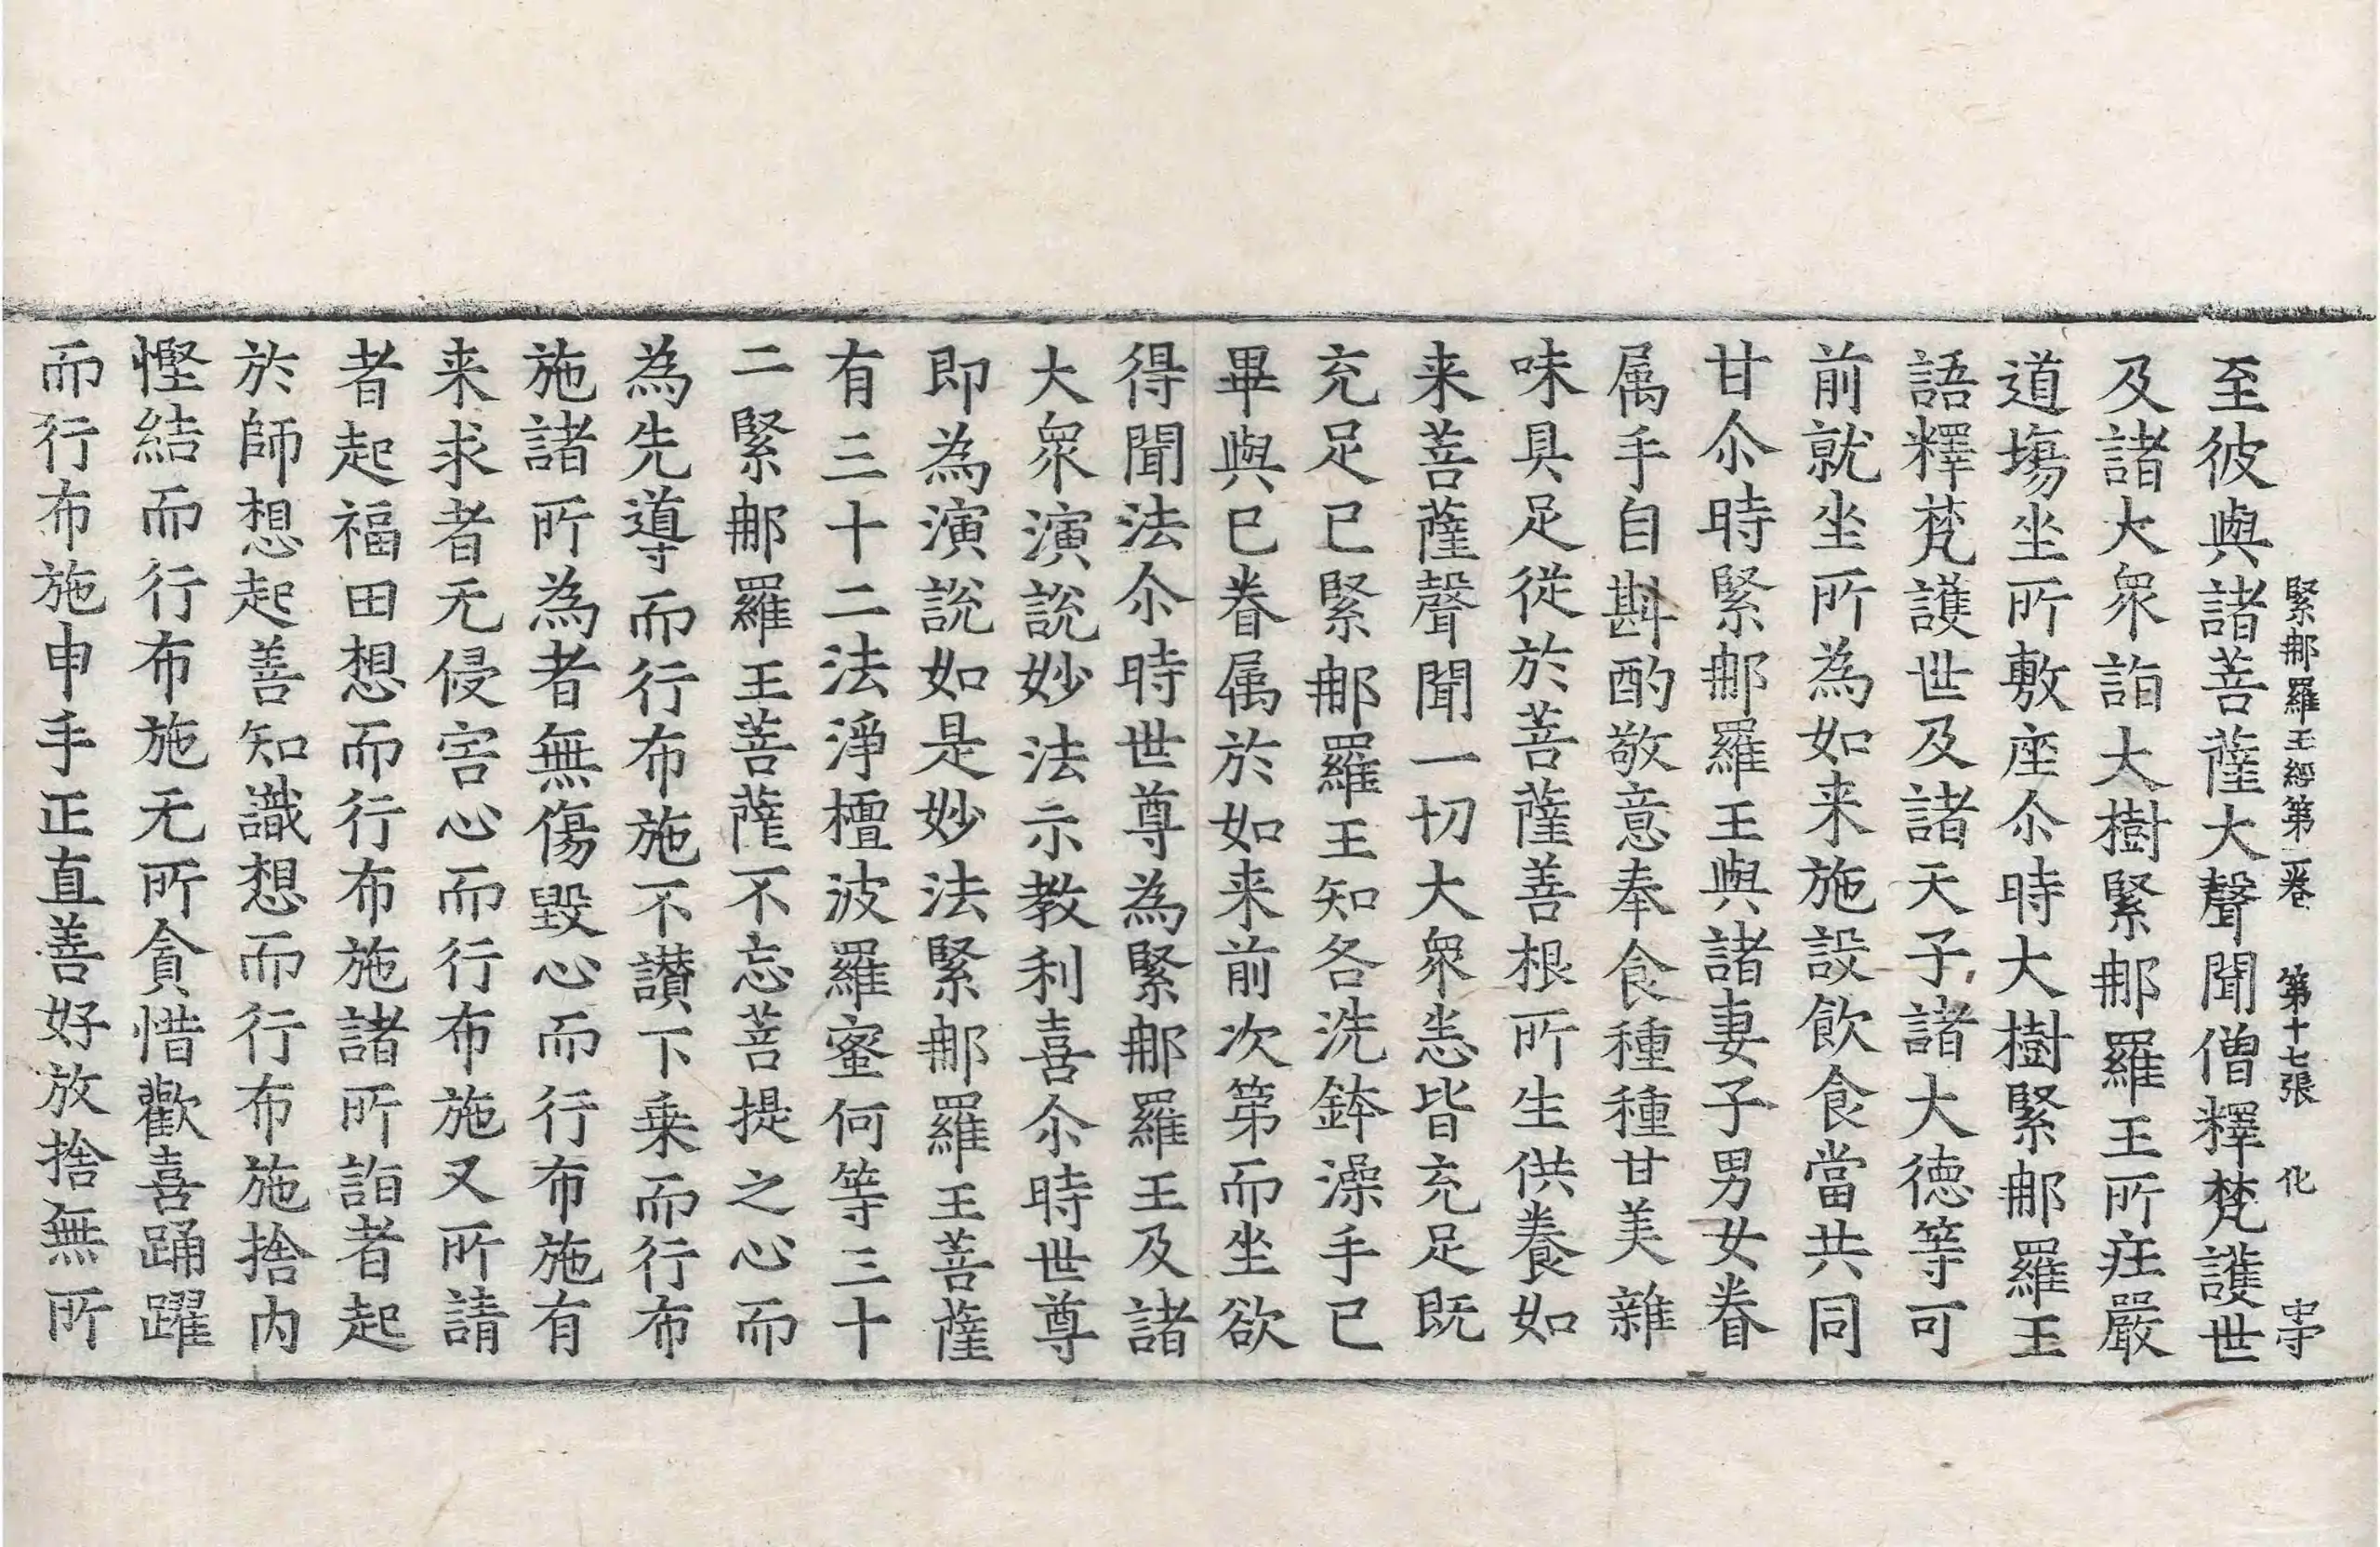 緊郍羅王經第二卷 第十七張 化 忠守
至彼與諸菩薩大聲聞僧釋梵護世
及諸大衆詣大樹緊郍羅王所莊嚴
道塲坐所敷座尒時大樹緊郍羅王
語釋梵護世及諸天子諸大德等可
前就坐所為如来施設飲食當共同
甘尒時緊郍羅王與諸妻子男女眷
属手自斟酌敬意奉食種種甘美雜
味具足從於菩薩善根所生供養如
来菩薩聲聞一切大衆悉皆充足既
充足已緊郍羅王知各洗鉢澡手已
畢與已眷属於如来前次第而坐欲
得聞法尒時世尊為緊郍羅王及諸
大衆演說妙法示教利喜尒時世尊
即為演說如是妙法緊郍羅王菩薩
有三十二法淨檀波羅蜜何等三十
二緊郍羅王菩薩不忘菩提之心而
為先導而行布施不讃下乗而行布
施諸所為者無傷毀心而行布施有
来求者无侵害心而行布施又所請
者起福田想而行布施諸所詣者起
於師想起善知識想而行布施捨内
慳結而行布施无所貪惜歡喜踊躍
而行布施申手正直善好放捨無所